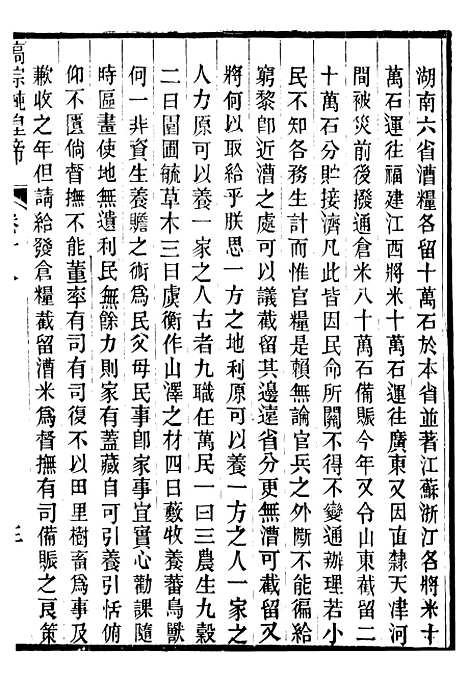 湖南六省漕糧各留十萬石於本省並著江蘇浙江各將米十
萬石運往福建江西將米十萬石運往廣東又因直隸天津河
間被災前後撥通倉米八十萬石備賑今年又令山東截留二
十萬石分貯接濟凡此皆因民命所關不得不變通辦理若小
民不知各務生計而惟官糧是賴無論官兵之外斷不能徧給
窮黎卽近漕之處可以議截留其邊遠省分更無漕可截留又
將何以取給乎朕思一方之地利原可以養一方之人一家之
人力原可以養一家之人古者九職任萬民一曰三農生九穀
二曰園圃毓草木三曰虞衡作山澤之材四曰藪牧養蕃鳥獸
何一非資生養贍之術爲民父母民事卽家事宜實心勸課隨
時區畫使地無遺利民無餘力則家有蓋藏自可引養引恬俯
仰不匱倘督撫不能董率有司有司復不以田里樹畜爲事及
歉收之年但請給發倉糧截留漕米爲督撫有司備賑之良策
高宗純皇帝
卷十八
三